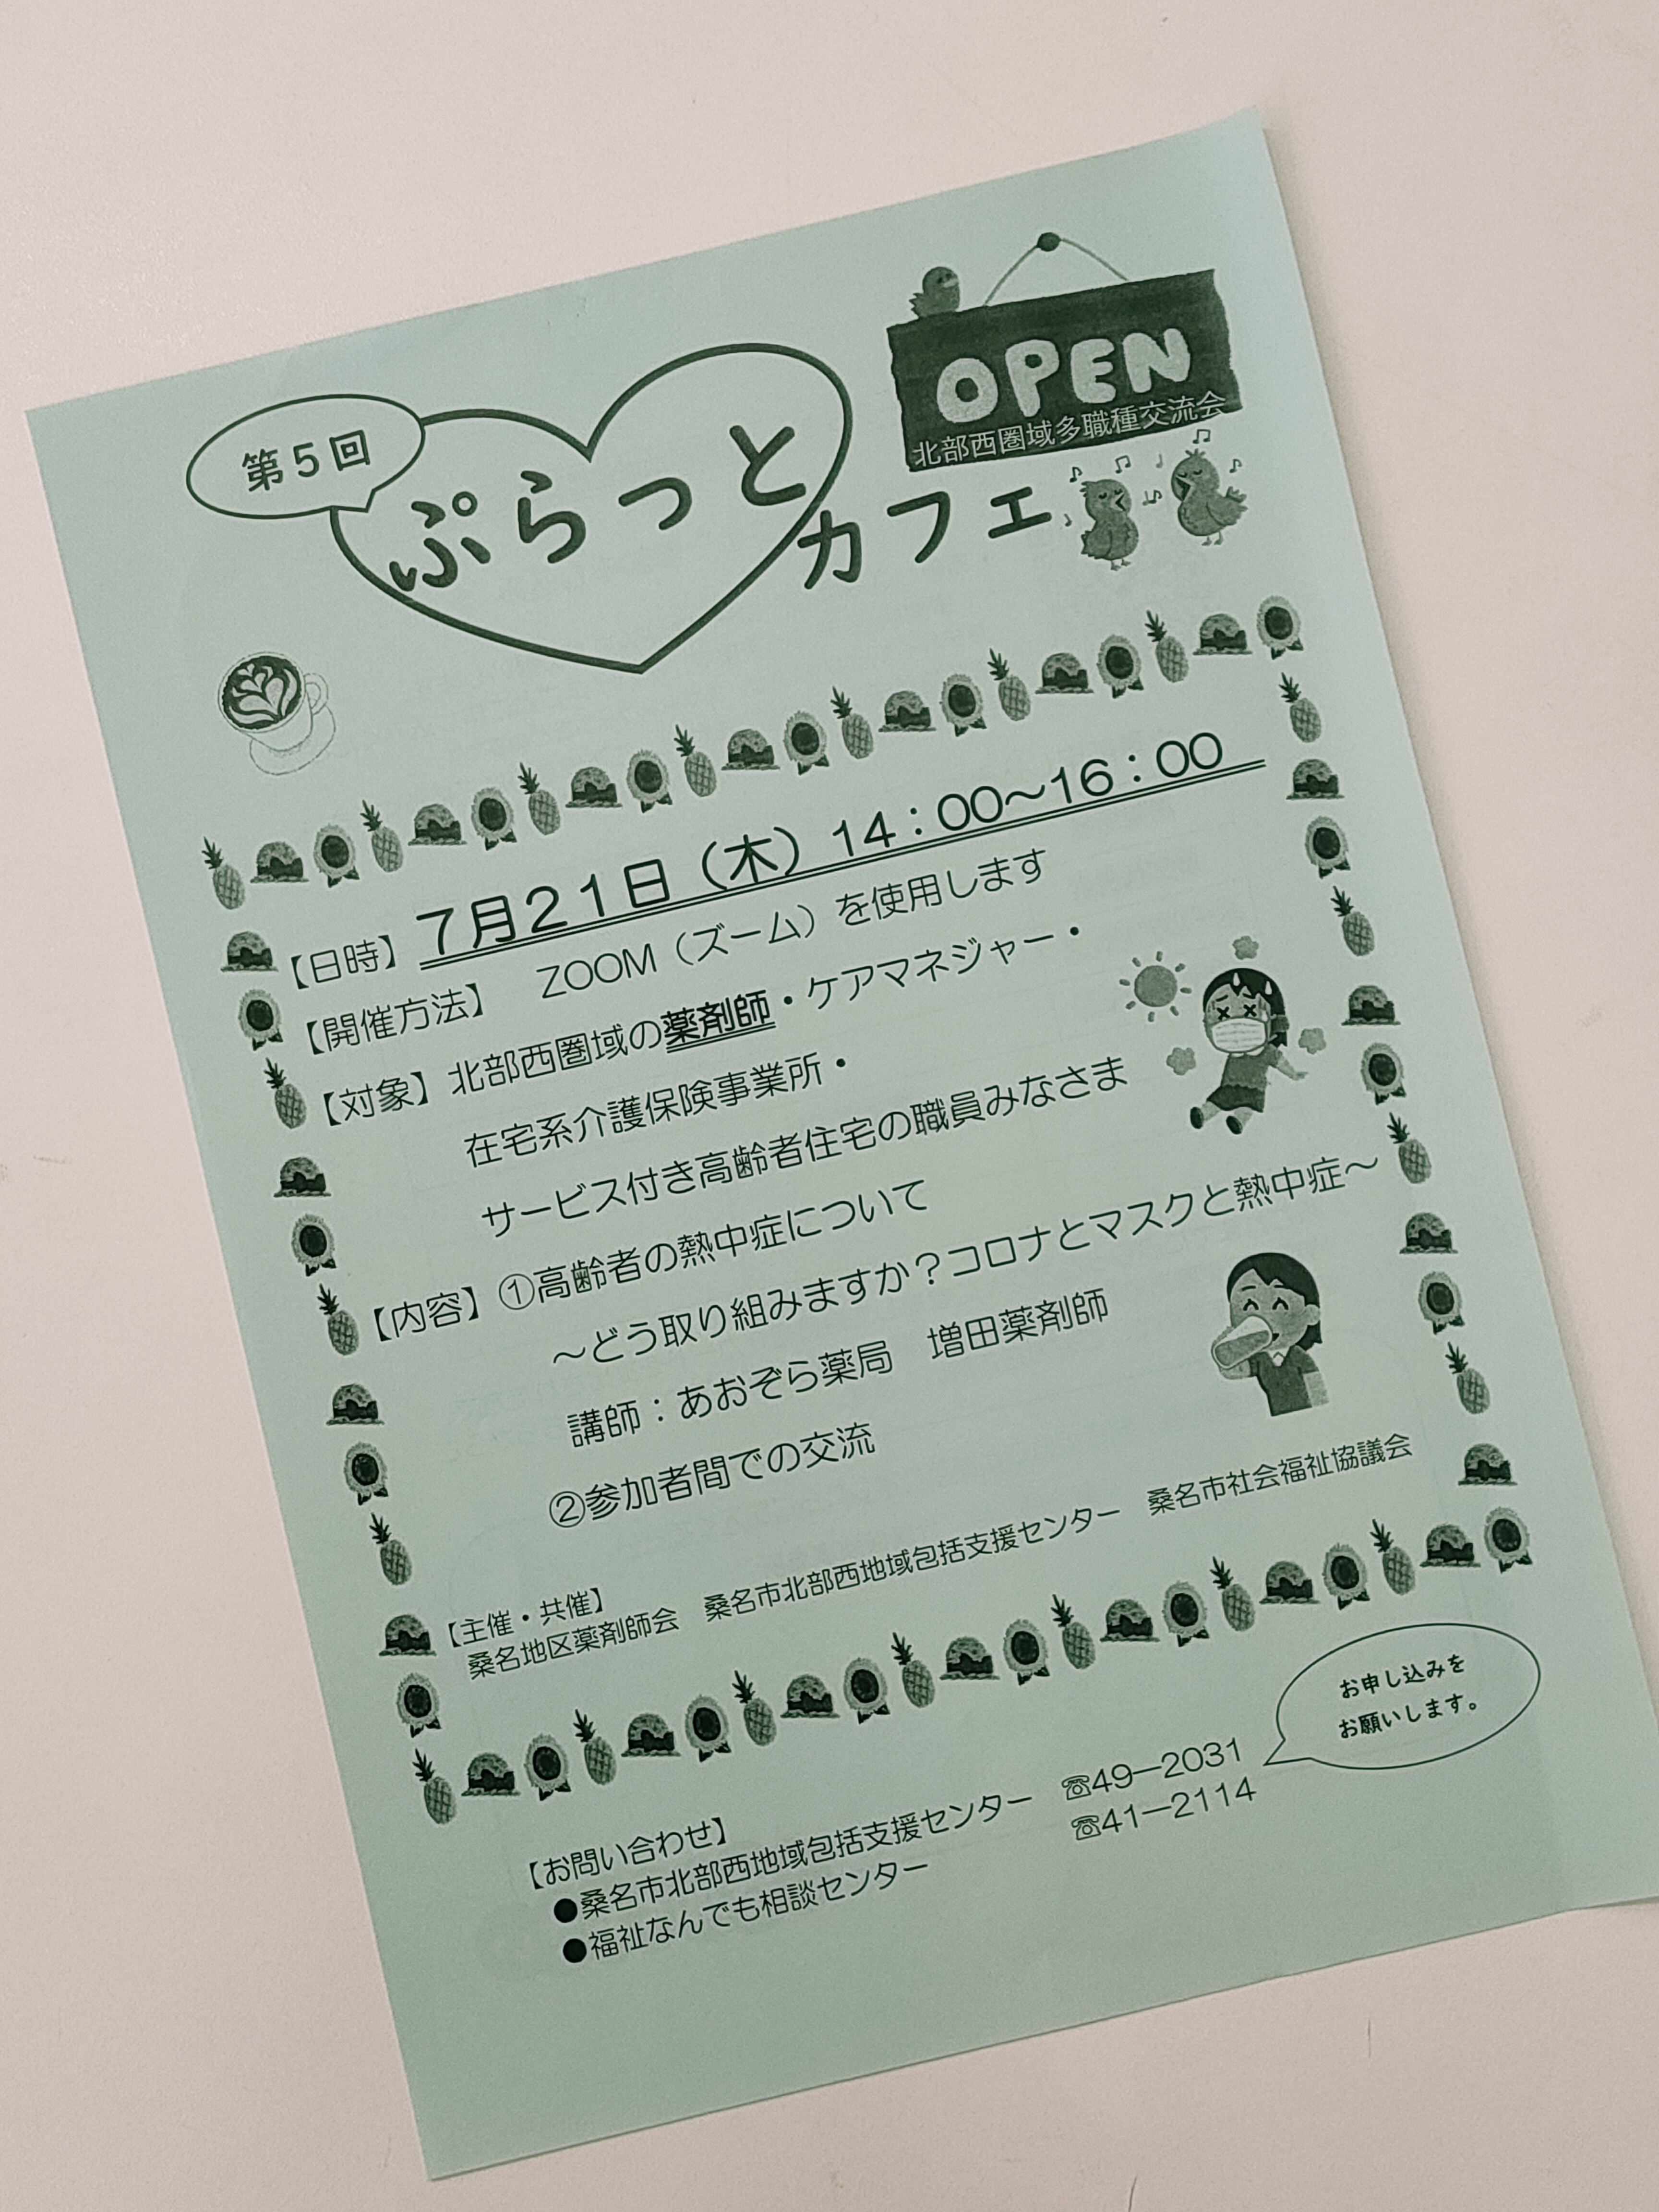 OPEN
北部西圏域多職種交流会
第5回
ぷらっと
カフェ
【日時】７月２１日（木）14：00～16：00
【開催方法】　ZOOM（ズーム）を使用します
【対象】北部西圏域の薬剤師・ケアマネジャー・
在宅系介護保険事業所・
サービス付き高齢者住宅の職員みなさま
【内容】①高齢者の熱中症について
～どう取り組みますか？コロナとマスクと熱中症～
講師：あおぞら薬局　増田薬剤師
②参加者間での交流
【主催・共催】
桑名地区薬剤師会　桑名市北部西地域包括支援センター　桑名市社会福祉協議会
お申し込みを
お願いします。
【お問い合わせ】
●桑名市北部西地域包括支援センター　☎49－2031
●福祉なんでも相談センター　☎41－2114